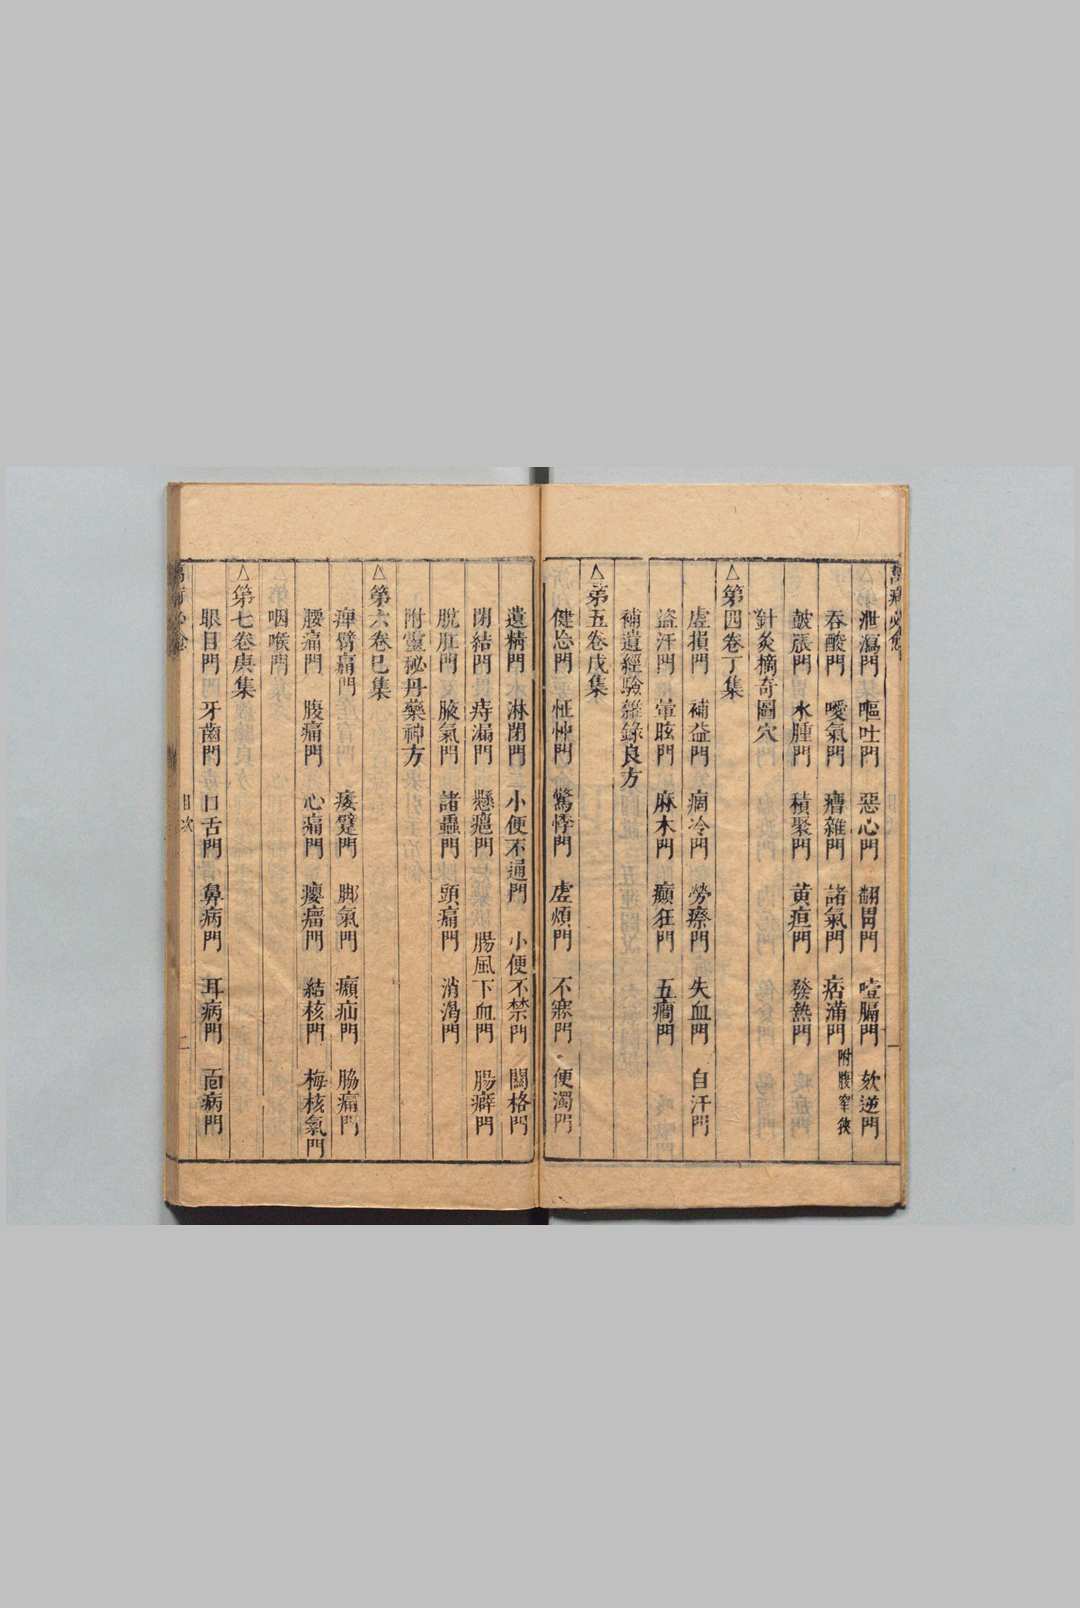 萬病必愈
一
泄瀉門 嘔吐門 惡心門 翻胃門 噎膈門 欬逆門
吞酸門 噯氣門 嘈雜門 諸氣門 痞滿門 附腹窄狹
皷脹門 水腫門 積聚門 黄疸門 發熱門
針灸摘奇圖穴
△第四卷丁集
虛損門 補益門 痼冷門 勞瘵門 失血門 自汗門
盜汗門 暈眩門 麻木門 癲狂門 五癎門
補遺經驗雜錄良方
△第五卷戊集
健忘門 怔忡門 驚悸門 虛煩門 不寐門 便濁門
遺精門 淋閉門 小便不通門 小便不禁門 關格門
閉結門 痔漏門 懸癰門 腸風下血門 腸癖門
脫肛門 腋氣門 諸蟲門 頭痛門 消渴門
附靈秘丹藥神方
△第六卷已集
痺臂痛門 痿躄門 脚氣門 癩疝門 脇痛門
腰痛門 腹痛門 心痛門 癭瘤門 結核門 梅核氣門
咽喉門
△第七卷庚集
眼目門 牙齒門 口舌門 鼻病門 耳病門 面病門
目次
二